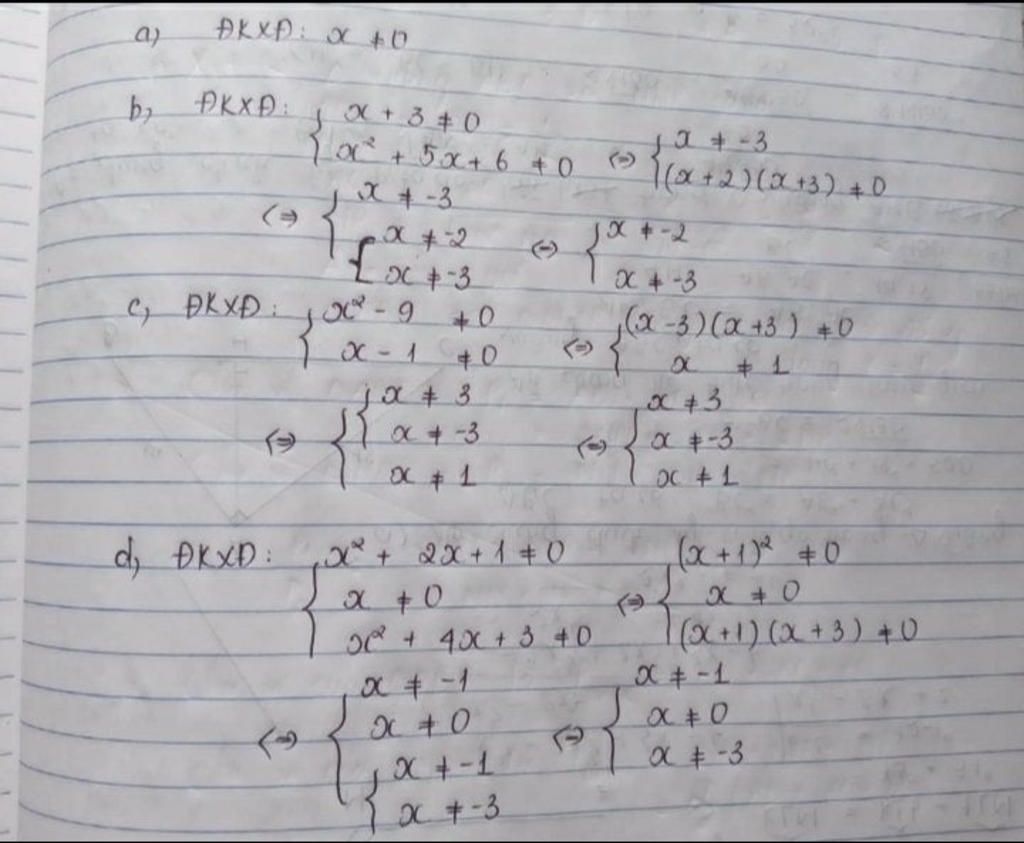 a, ĐKXĐ: x ≠ 0
b, ĐKXĐ: { x + 3 ≠ 0
x² + 5x + 6 ≠ 0 <=> { x ≠ -3
(x+2)(x+3) ≠ 0
<=> { x ≠ -3
[ x ≠ -2
x ≠ -3 <=> { x ≠ -2
x ≠ -3
c, ĐKXĐ: { x² - 9 ≠ 0
x - 1 ≠ 0 <=> { (x-3)(x+3) ≠ 0
x ≠ 1
<=> { { x ≠ 3
x ≠ -3
x ≠ 1 <=> { x ≠ 3
x ≠ -3
x ≠ 1
d, ĐKXĐ: { x² + 2x + 1 ≠ 0
x ≠ 0
x² + 4x + 3 ≠ 0 <=> { (x+1)² ≠ 0
x ≠ 0
(x+1)(x+3) ≠ 0
<=> { x ≠ -1
x ≠ 0
{ x ≠ -1
x ≠ -3 <=> { x ≠ -1
x ≠ 0
x ≠ -3